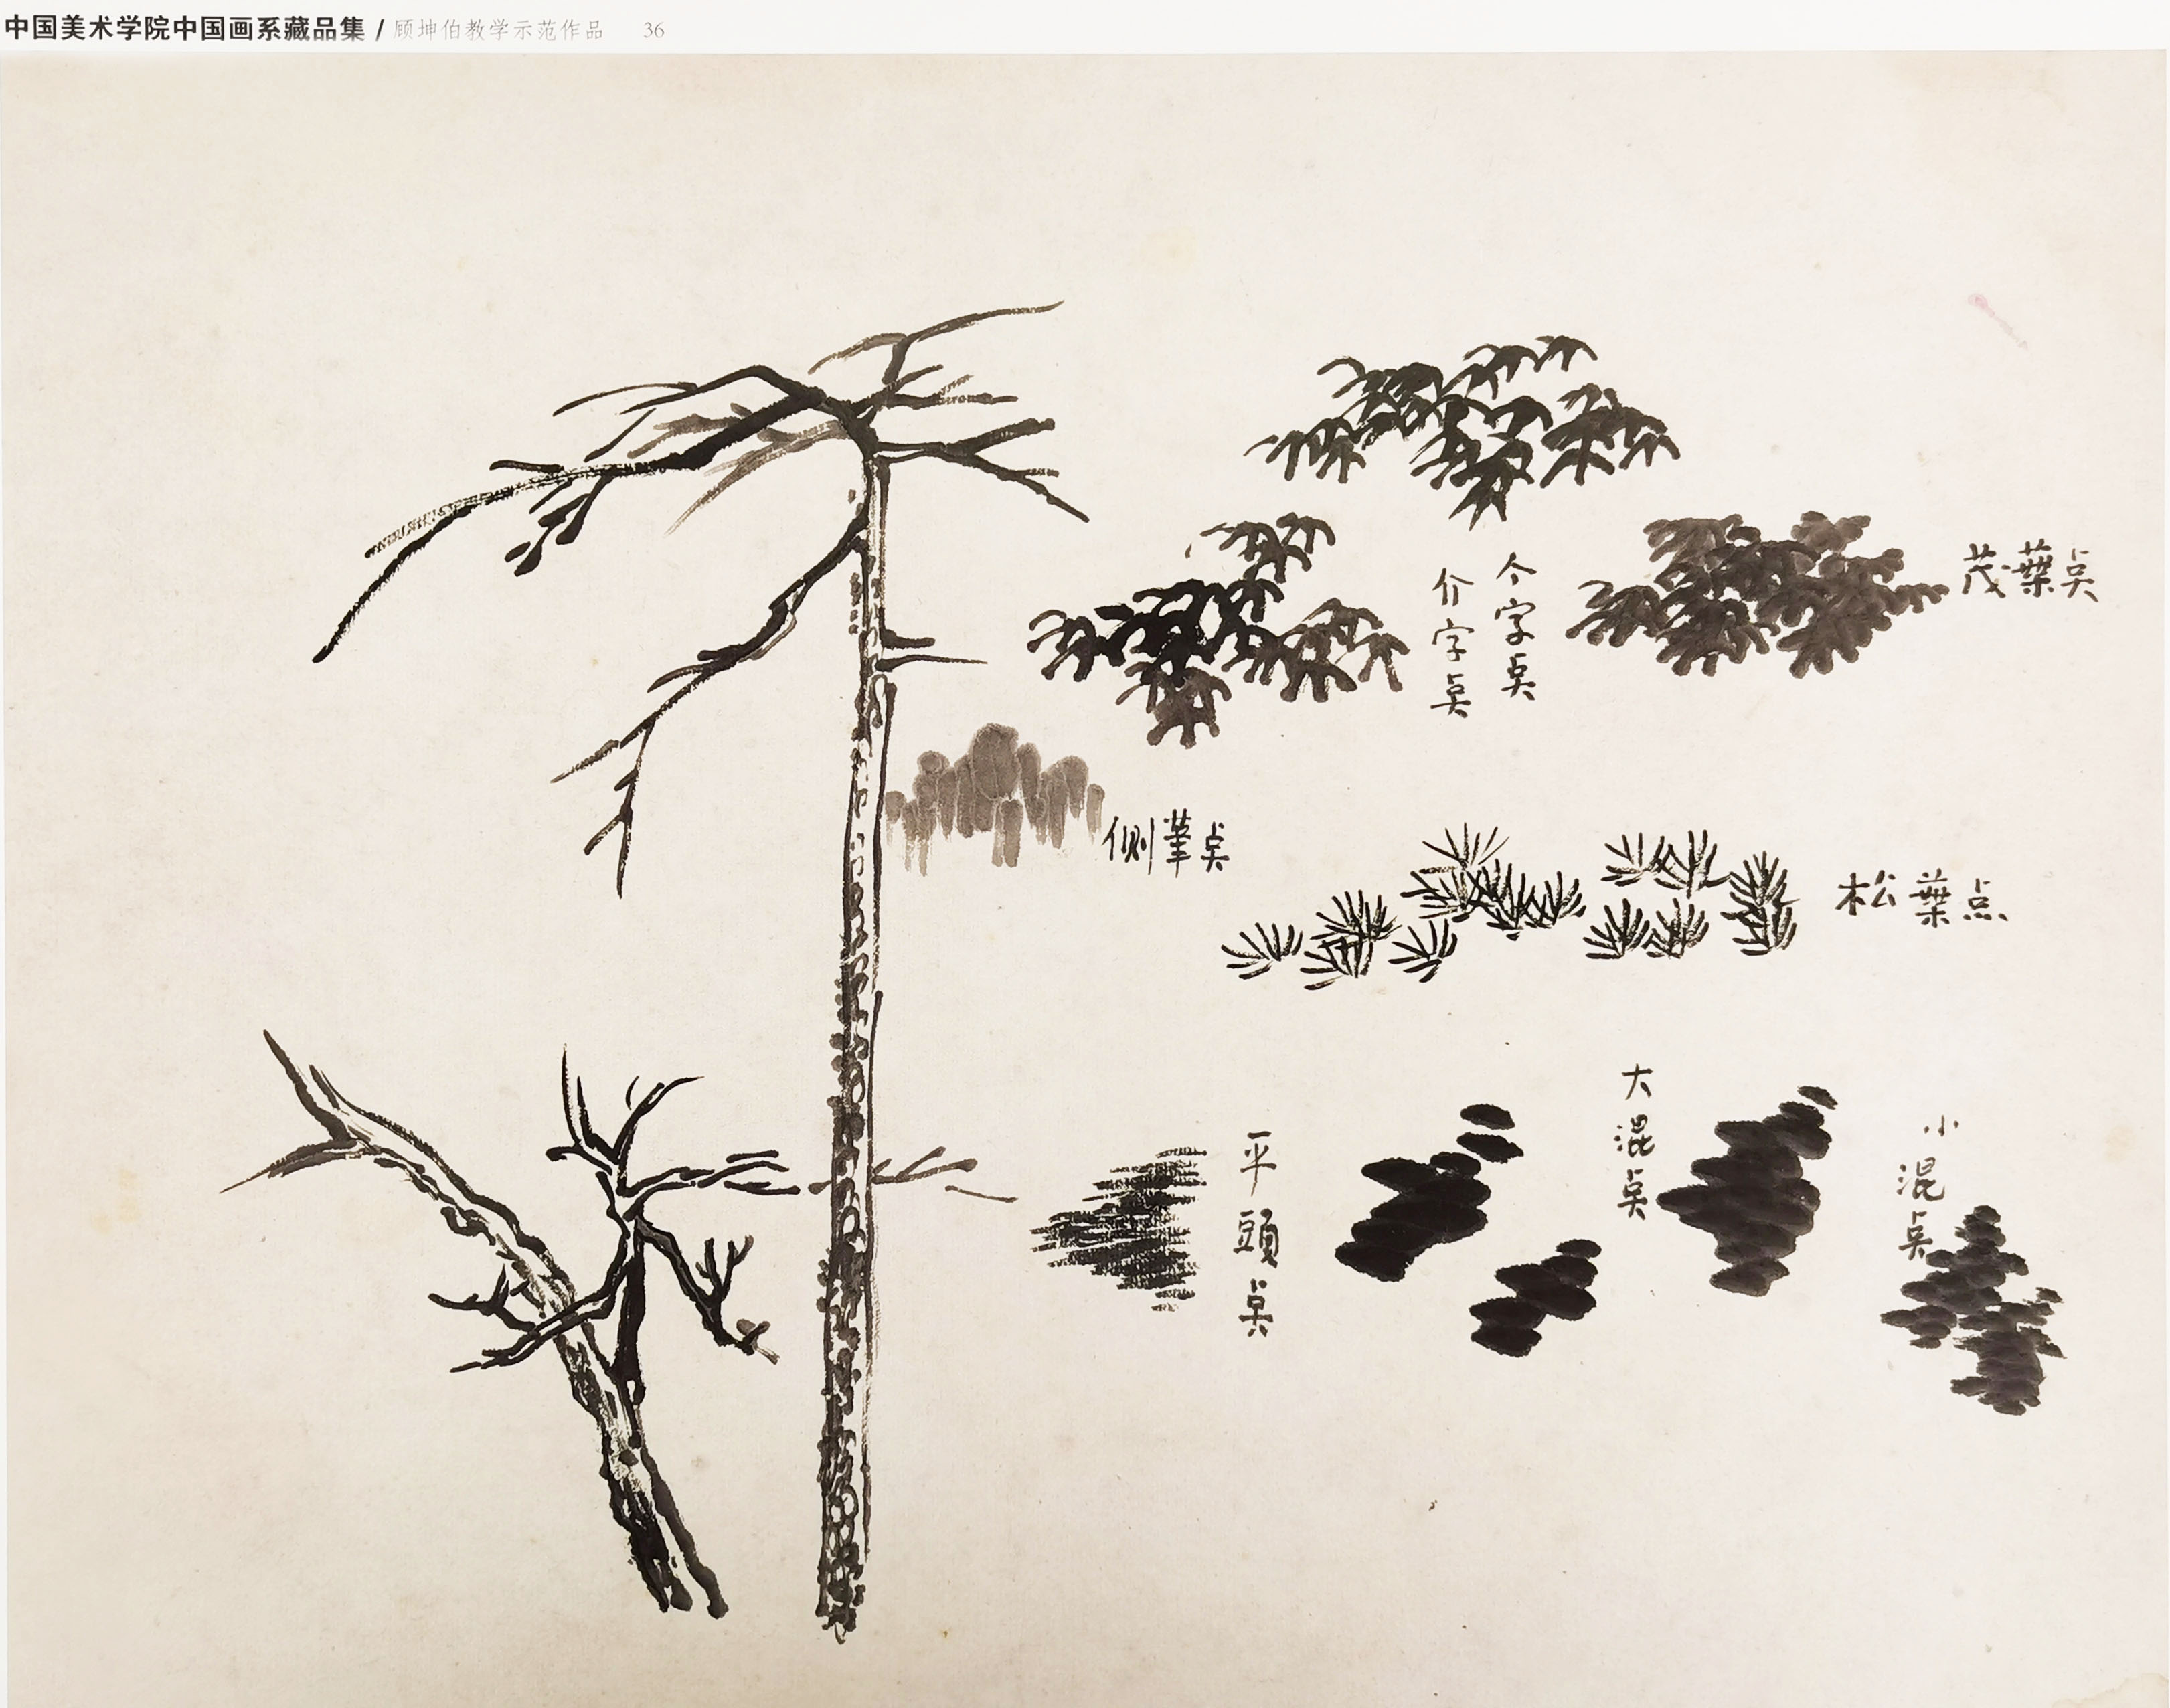 中国美术学院中国画系藏品集 / 顾坤伯教学示范作品 36
茂葉点
个字点
介字点
侧筆点
松葉点
大混点
小混点
平頭点